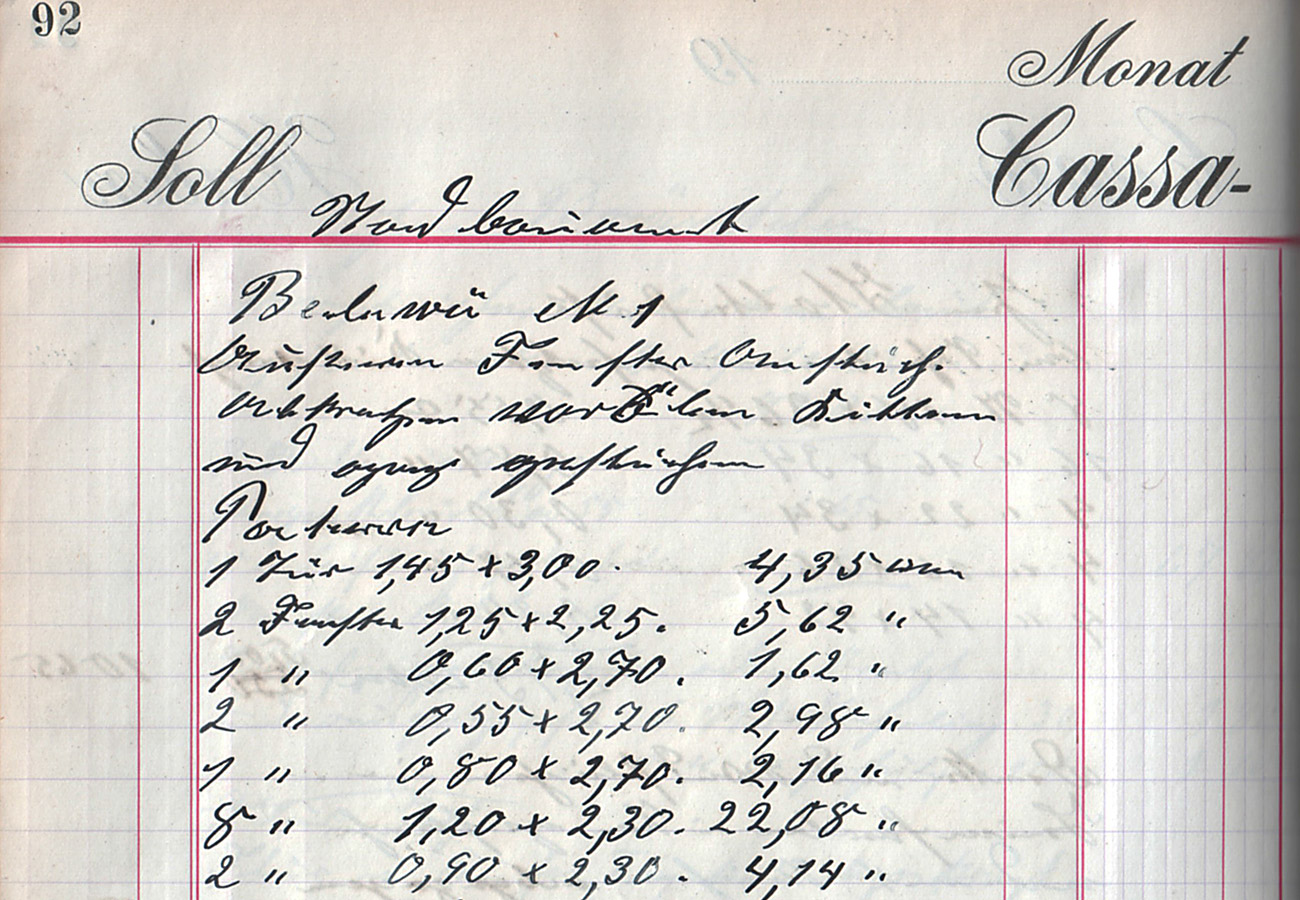 92
Monat
Soll
Cassa-
Stadtbauamt
Bellevue No 1
Äussern Fenster Anstrich.
Abkratzen vorölen Kitten
und ganz gestrichen
Parterre
1 Tür 1,45 x 3,00. 4,35 qm
2 Fenster 1,25 x 2,25. 5,62 "
1 " 0,60 x 2,70. 1,62 "
2 " 0,55 x 2,70. 2,98 "
1 " 0,80 x 2,70. 2,16 "
8 " 1,20 x 2,30. 22,08 "
2 " 0,90 x 2,30. 4,14 "